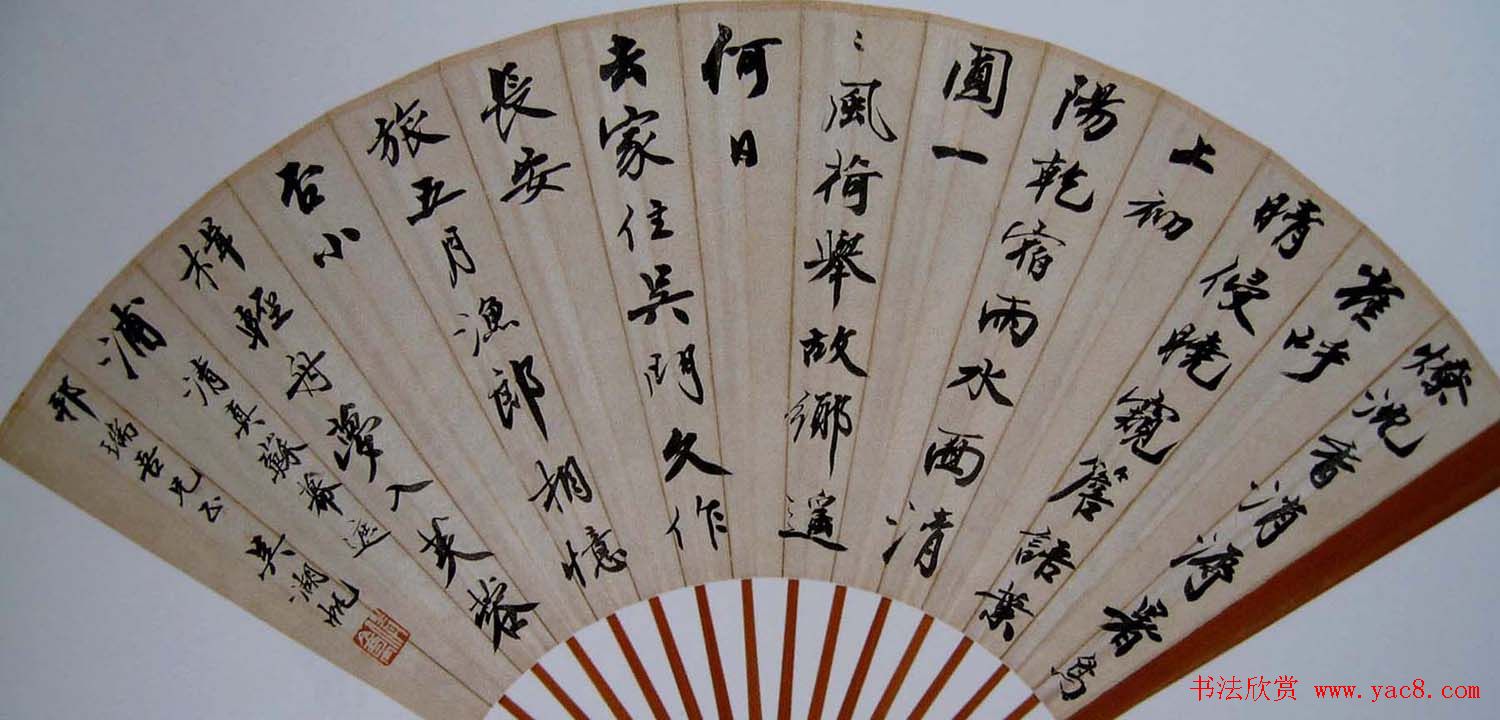 燎沈香消溽暑鳥
雀呼
晴侵曉窺簷語葉
上初
陽乾宿雨水面清
圓一
〻風荷舉故鄉遙
何日
去家住吳門久作
長安
旅五月漁郎相憶
否小
楫輕舟夢入芙蓉
浦
清真蘇幕遮
邦瑞吾兄正
吳湖帆
书法欣赏 www.yac8.com